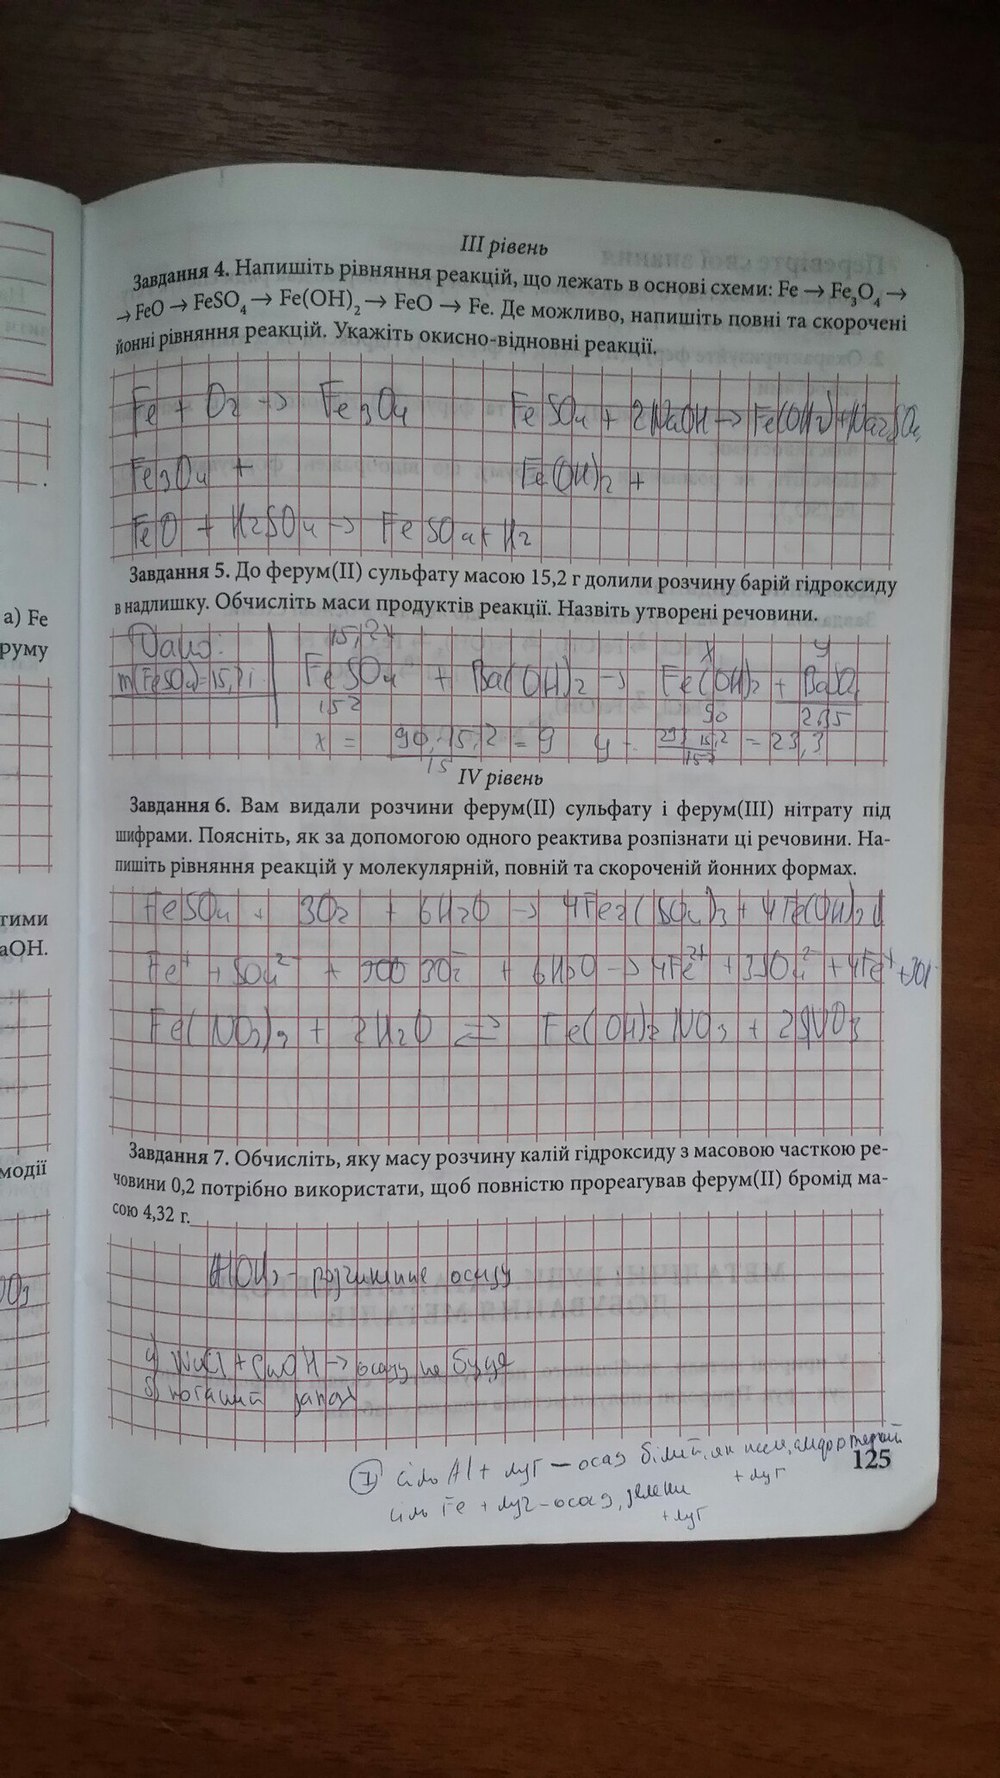 III рівень
Завдання 4. Напишіть рівняння реакцій, що лежать в основі схеми: Fe → Fe₃O₄ →
→ FeO → FeSO₄ → Fe(OH)₂ → FeO → Fe. Де можливо, напишіть повні та скорочені
йонні рівняння реакцій. Укажіть окисно-відновні реакції.
Fe + O₂ → Fe₃O₄ FeSO₄ + 2NaOH → Fe(OH₂) + Na₂SO₄
Fe₃O₄ + Fe(OH)₂ +
FeO + H₂SO₄ → FeSO₄ + H₂
Завдання 5. До ферум(II) сульфату масою 15,2 г долили розчину барій гідроксиду
в надлишку. Обчисліть маси продуктів реакції. Назвіть утворені речовини.
Дано: 15,2 x y
m(FeSO₄)=15,2г FeSO₄ + Ba(OH)₂ → Fe(OH)₂ +
152 90
x = = 9 y = = 23,3
IV рівень
Завдання 6. Вам видали розчини ферум(II) сульфату і ферум(III) нітрату під
шифрами. Поясніть, як за допомогою одного реактива розпізнати ці речовини. На-
пишіть рівняння реакцій у молекулярній, повній та скороченій йонних формах.
FeSO₄ + 3O₂ + 6H₂O → 4Fe₂(SO₄)₃ + 4Fe(OH)₃↓
+ 6H₂O →
Fe(NO₃)₃ + 2H₂O ⇄ Fe(OH)₂NO₃ +
Завдання 7. Обчисліть, яку масу розчину калій гідроксиду з масовою часткою ре-
човини 0,2 потрібно використати, щоб повністю прореагував ферум(II) бромід ма-
сою 4,32 г.
розчинине осаду
→ осаду не буде
б) поганий запах
125
① сіль Al + луг – осад білий, як
+ луг
сіль Fe + луг – осад,
+ луг
а) Fe
руму
тими
аОН.
модії